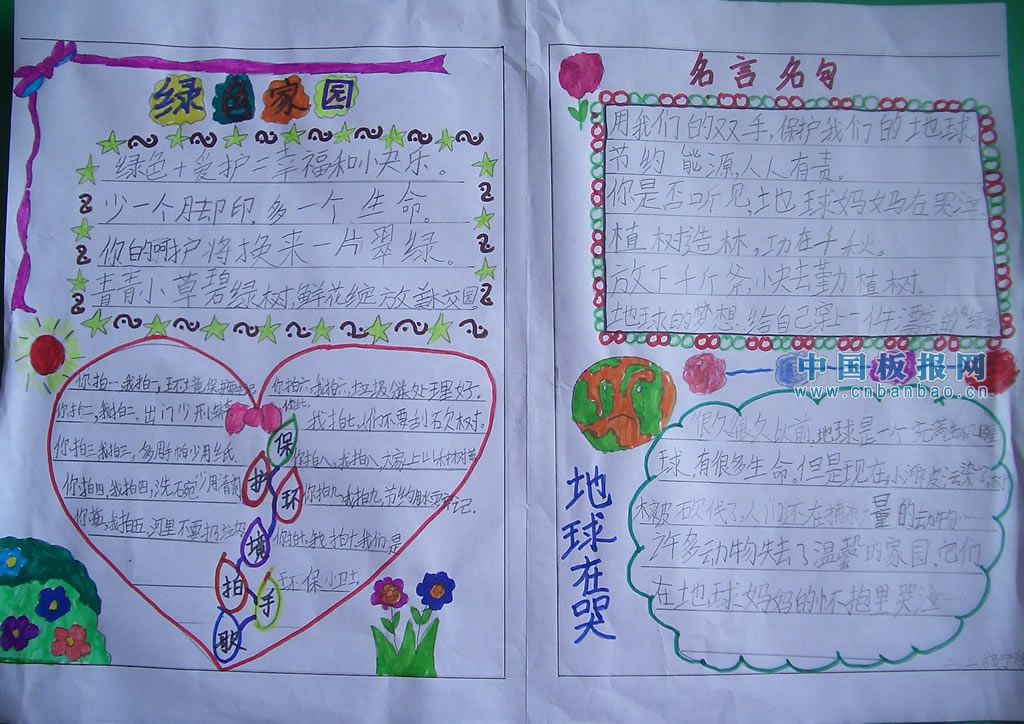 绿色家园
绿色+爱护=幸福和小快乐。
少一个脚印,多一个生命。
你的呵护将换来一片翠绿。
青青小草碧绿树,鲜花绽放校园。
你拍一,我拍一,环境保护
你拍二,我拍二,出门少开小
你拍三我拍三,多用手帕少用纸
你拍四,我拍四,洗石碗少用
你拍五,我拍五,河里不要扔垃圾
你拍六,我拍六,垃圾处理好。
你拍七,我拍七,人们不要乱砍树。
你拍八,我拍八,大家上山
你拍九,我拍九,节约用水记。
你拍十,我拍十,我们是
环保小卫士
保护环境拍手歌
名言名句
用我们的双手,保护我们的地球。
节约能源,人人有责。
你是否听见,地球妈妈在哭泣
植树造林,功在千秋。
放下千斤斧,小快去勤力植树。
地球的梦想:给自己穿上一件漂亮的
中国板报网
www.cnbanbao.cn
地球在哭
很久很久以前,地球是一个
球,有很多生命。但是现在,小河
被砍伐了,人们还在捕杀大量的动物……
许多动物失去了温馨的家园,它们
在地球妈妈的怀抱里哭泣……